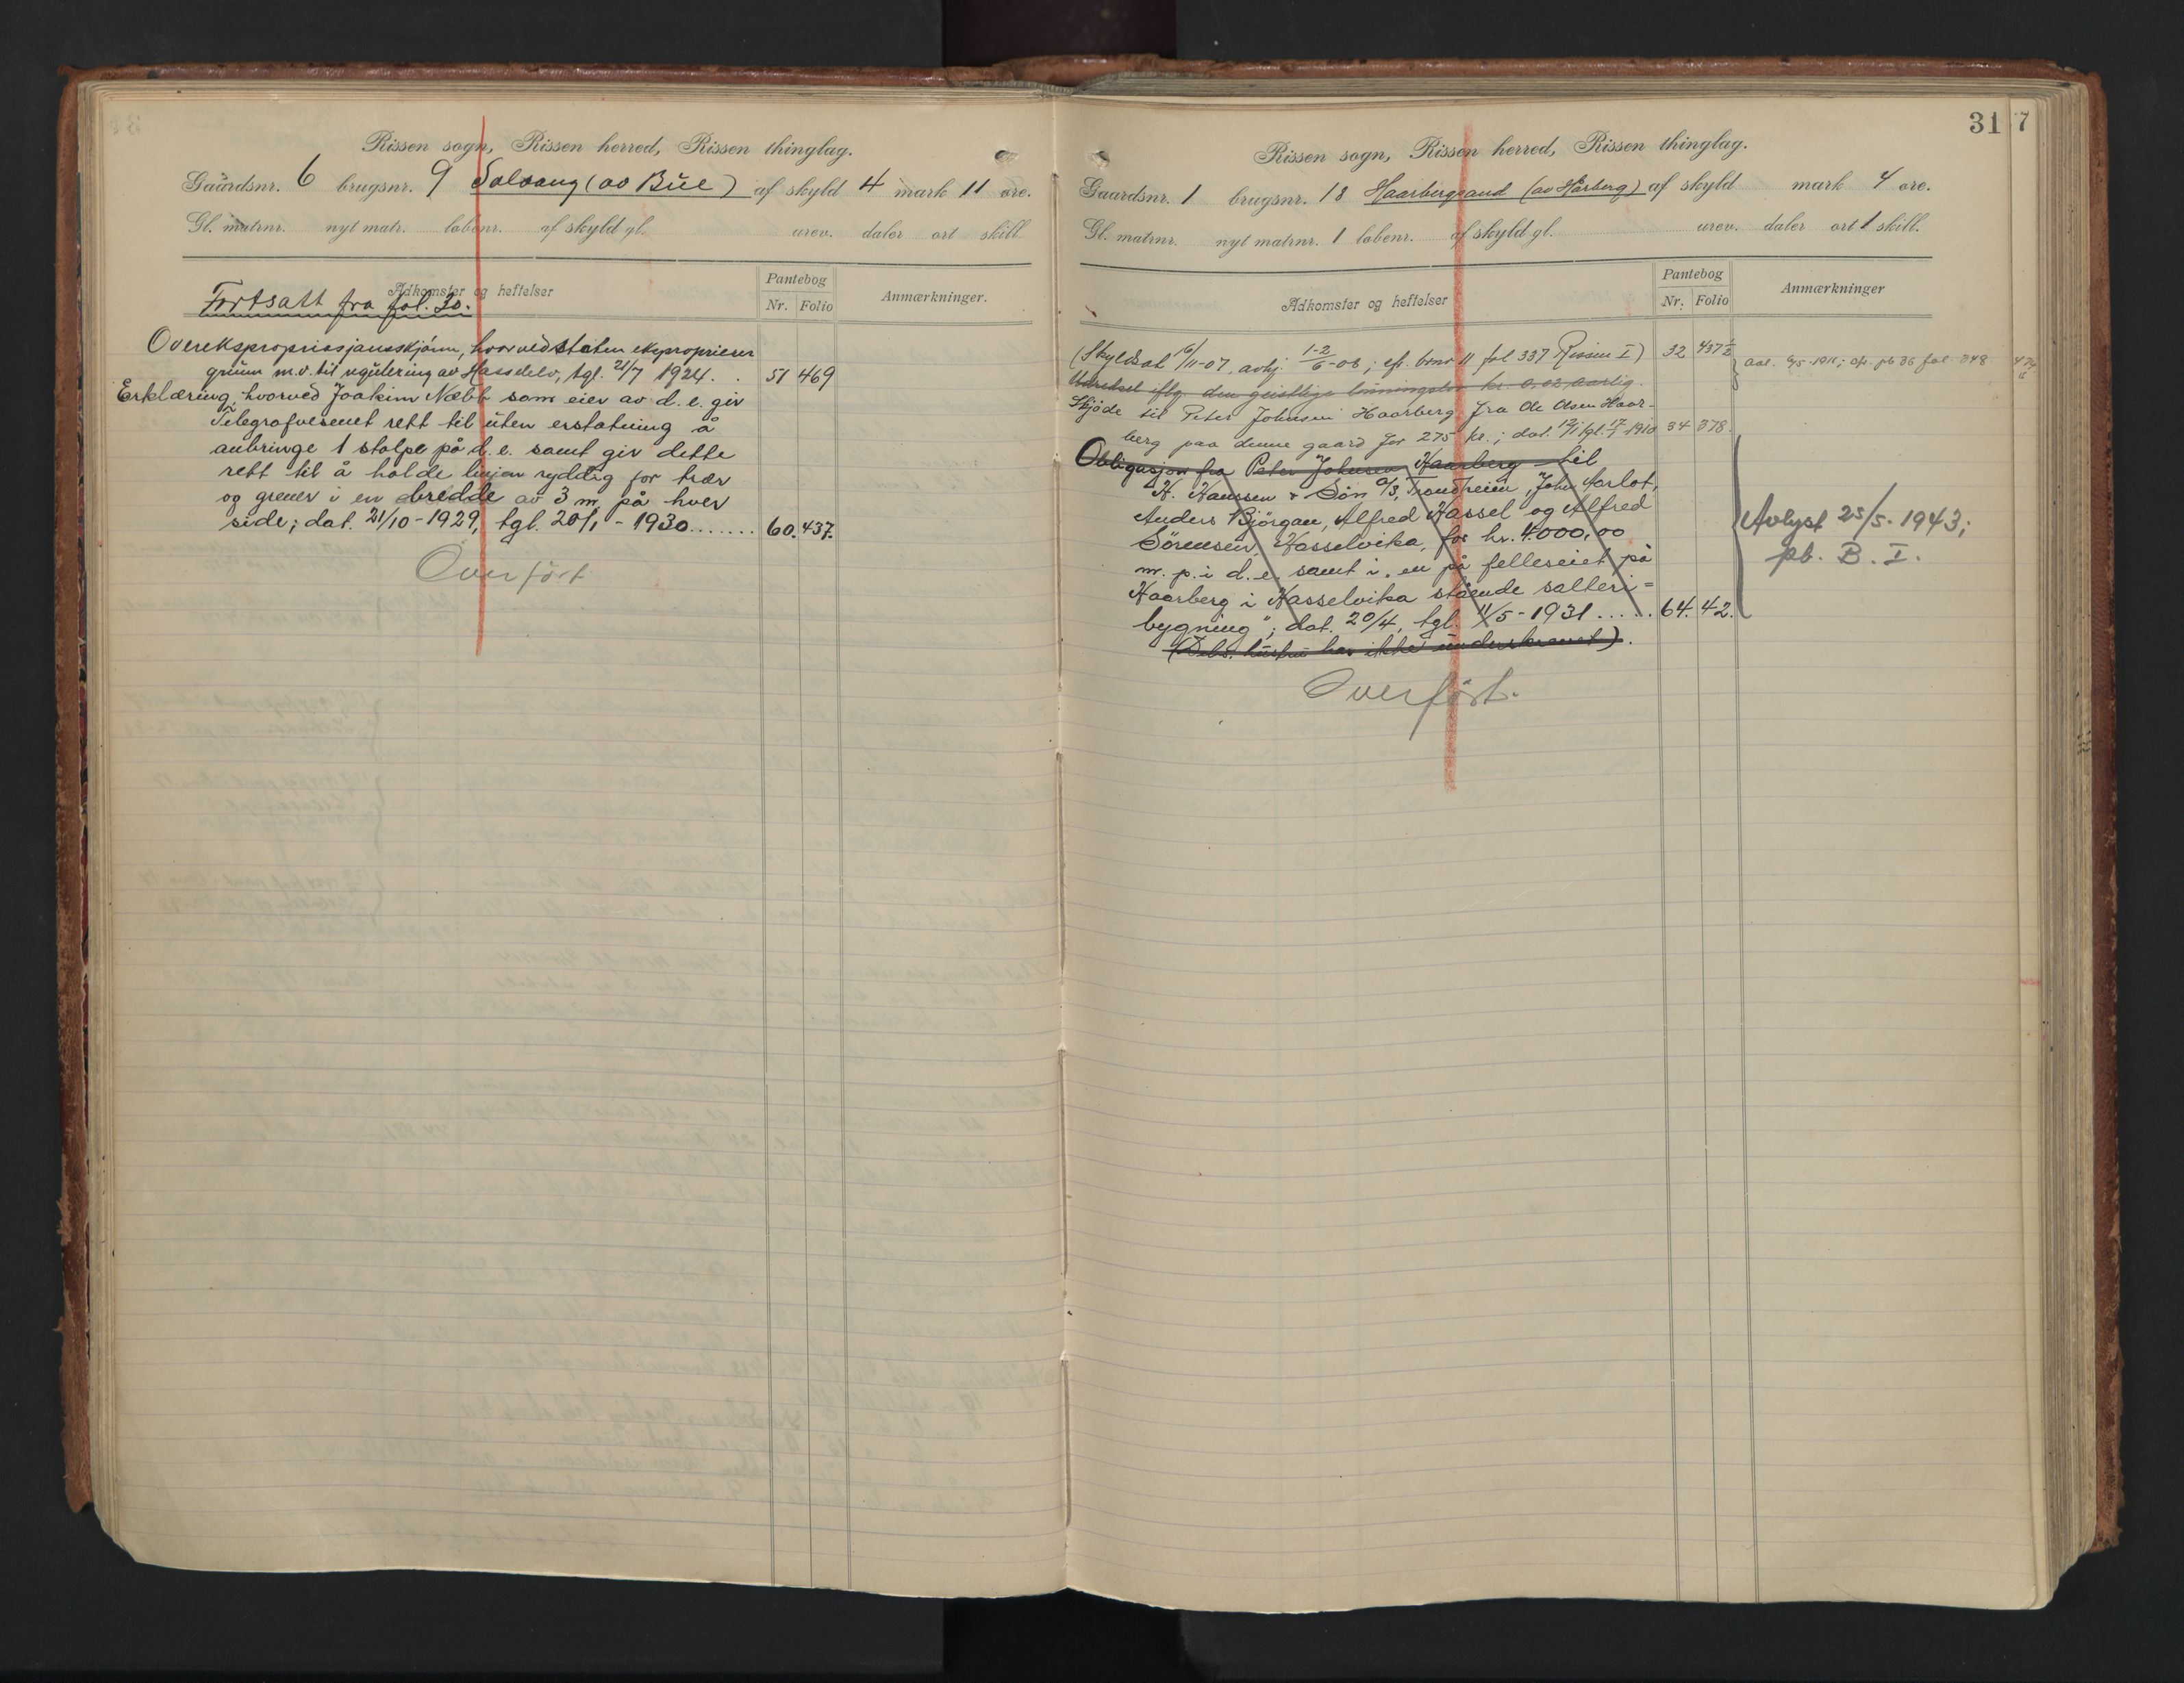 Rissen sogn, Rissen herred, Rissen thinglag.
Gaardsnr. 6 brugsnr. 9 Solvang (av Bue) af skyld 4 mark 11 øre.
Gl. matrnr. nyt matr. løbenr. af skyld gl. urev. daler ort skill
Adkomster og heftelser Pantebog Nr. Folio Anmærkninger.
Fortsatt fra fol. 30.
Overekspropriasjonsskjønn, hvorved staten eksproprierer
grunn m.v. til regulering av Hasselelv, tgl. 21/7 1924. . 51 469
Erklæring, hvorved Joakim Næbb som eier av d.e. gir
Telegrafvesenet rett til uten erstatning å
anbringe 1 stolpe på d.e. samt gir dette
rett til å holde linjen ryddig for trær
og grener i en bredde av 3 m. på hver
side; dat. 21/10-1929, tgl. 20/1-1930....... 60. 437.
Overført
31 7
Rissen sogn, Rissen herred, Rissen thinglag.
Gaardsnr. 1 brugsnr. 18 Haarbergsand (av Hårberg) af skyld mark 4 øre.
Gl. matrnr. nyt matrnr. 1 løbenr. af skyld gl. urev. daler ort 1 skill.
Adkomster og heftelser Pantebog Nr. Folio Anmærkninger
(Skyldsat /11-07, avhj. 1-2/6-08; cfr. brnr 11 fol 337 Rissen I) 32 437
iflg. den geistlige lønningslov kr. 0,02 aarlig.
Skjøde til Peter Johnsen Haarberg fra Ole Olsen Haar-
berg paa denne gaard for 275 kr.; dat. tgl. 1910 34 378.
Obligasjon fra Peter Johnsen Haarberg til
K. Hanssen & Søn A/S, Trondheim, John Aarlot,
Anders Bjørgan, Alfred Hassel og Alfred
Sørensen, Hasselvika, for kr. 4.000,00
m. p. i d.e. samt i „en på felleseiet på
Haarberg i Hasselvika stående salteri=
bygning"; dat. 20/4, tgl. 11/5-1931 ..... 64. 42.
(Deb. hustru har ikke underskrevet).
Avlyst 25/5. 1943;
pb. B. I.
Overført.